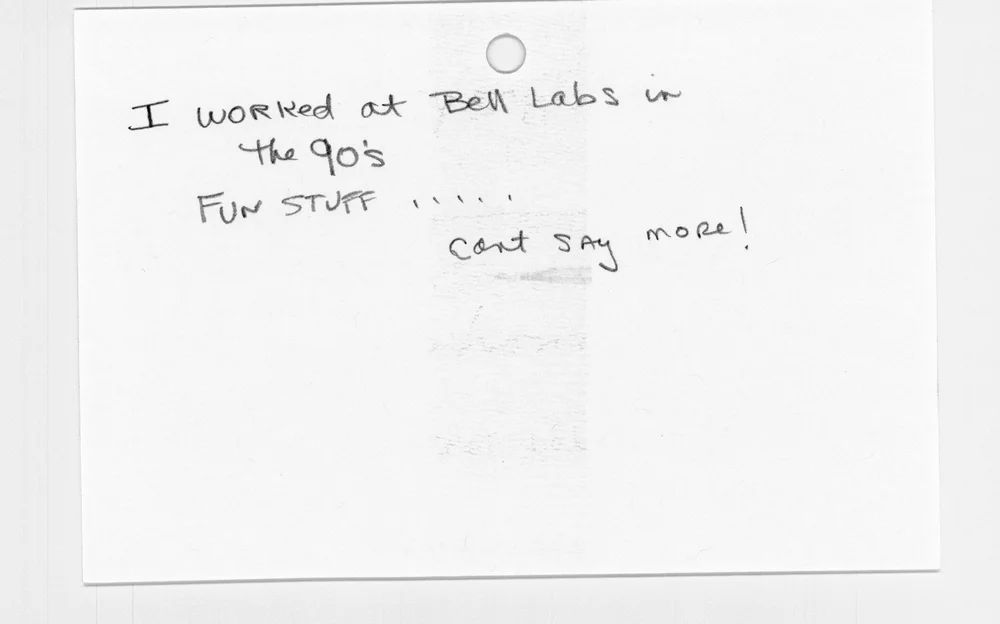 I WORKed at Bell Labs in
the 90's
FUN STUFF .....
Cant SAy moRe!